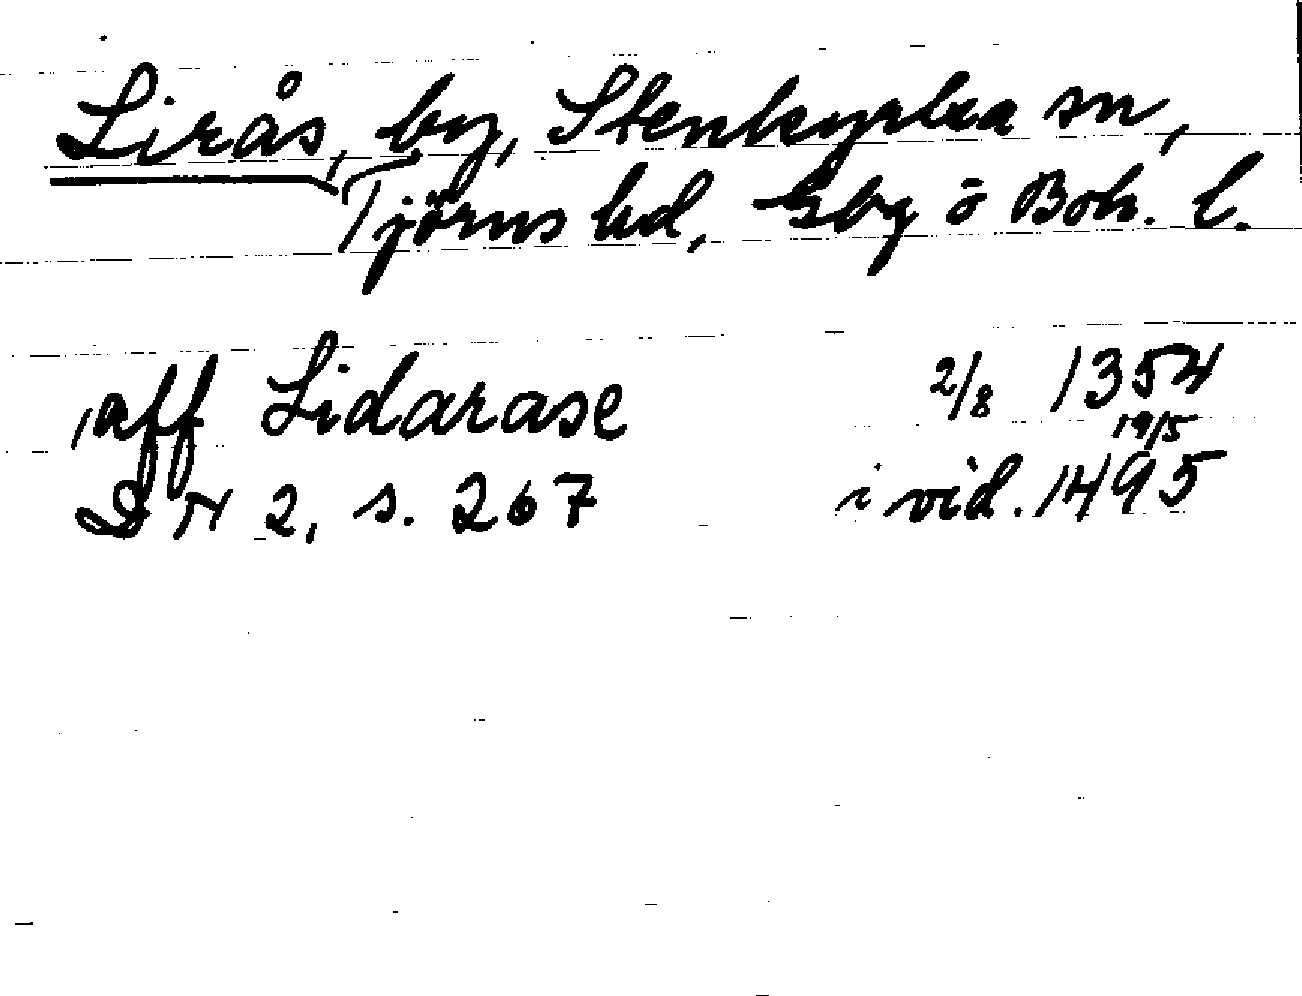 Lirås, by, Stenkyrka sn,
Tjörns hd, Gbg o Boh. l.
,aff Lidarase 2/8 1354
19/5
DN 2, s. 267 i vid. 1495